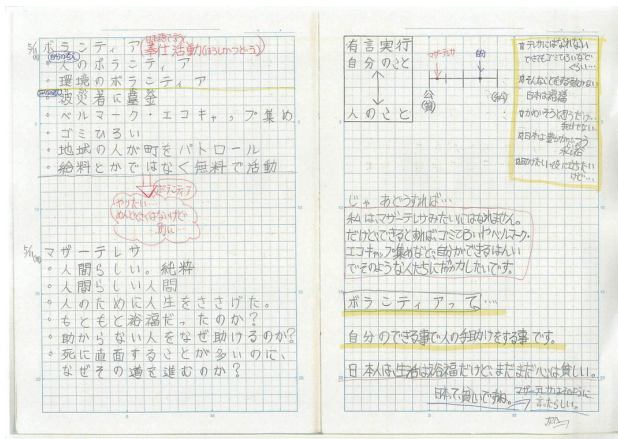 5/1 ボランティア 奉仕活動(ほうしかつどう)
・人のボランティア
・環境のボランティア
・被災者に募金
・ベルマーク・エコキャップ集め
・ゴミひろい
・地域の人が町をパトロール
・給料とかではなく無料で活動
ボランティア
やりたい…
めんどくさくはないけど…
マザーテレサ
・人間らしい。純粋
・人間らしい人間
・人のために人生をささげた。
・もともと裕福だったのか?
・助からない人をなぜ助けるのか?
・死に直面することが多いのに、
なぜその道を進むのか?
有言実行
自分のこと
人のこと
マザーテレサ
自分
☆テレサにはなれない
できてもゴミひろいなど
くらい…
日本は裕福
☆かわいそうと思うだけ…
じゃあどうすれば…
私はマザーテレサみたいにはなれません。
だけど、できるとすれば、ゴミひろいやベルマーク・
エコキャップ集めなど、自分ができるはんい
でそのような人たちに協力したいです。
ボランティアって…
自分のできる事で人の手助けをする事です。
日本人は、生活は裕福だけど、まだまだ心は貧しい。
日本て、貧しいですね。
マザーテレサはそのように
言ったらしい。